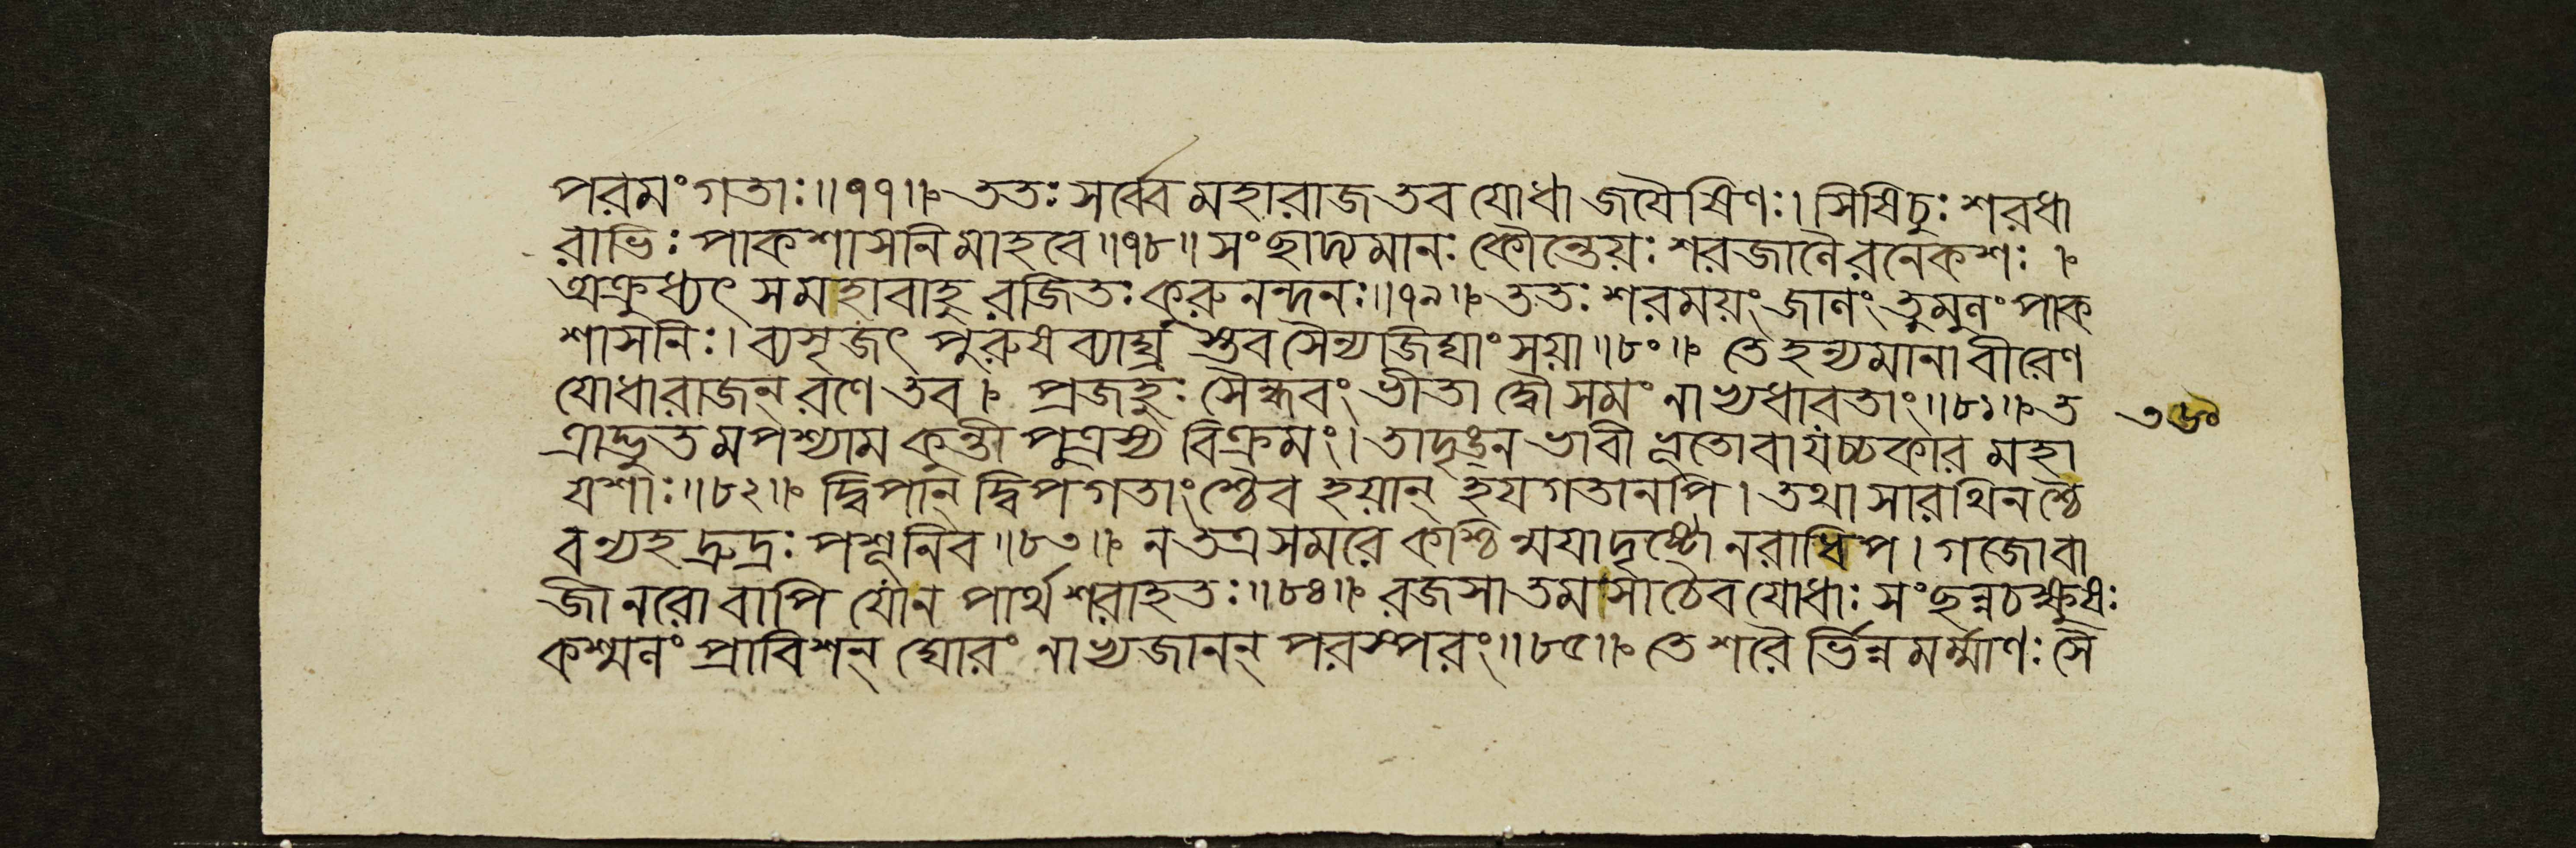 পরমং গতাঃ॥৭৭॥ ততঃ সর্ব্বে মহারাজ তব যোধা জয়ৈষিণঃ। সিষিচুঃ শরধা
রাভিঃ পাকশাসনিমাহবে॥৭৮॥ সংছাদ্যমানঃ কৌন্তেয়ঃ শরজালৈরনেকশঃ।
অক্রুধ্যৎ সমহাবাহুরজিতঃ কুরুনন্দনঃ॥৭৯॥ ততঃ শরময়ং জালং তুমুলং পাক
শাসনিঃ। ব্যসৃজৎ পুরুষব্যাঘ্রস্তব সৈন্যজিঘাংসয়া॥৮০॥ তে হন্যমানা বীরেণ
যোধা রাজন্ রণে তব। প্রজহুঃ সৈন্ধবং ভীতা দ্বৌ সমং নাপ্যধাবতাং॥৮১॥ ত
ত্রাদ্ভুতমপশ্যাম কুন্তীপুত্রস্য বিক্রমং। তাদৃঙ্ন ভাবী ভূতো বা যচ্চকার মহা
যশাঃ॥৮২॥ দ্বিপান্ দ্বিপগতাংশ্চৈব হয়ান্ হয়গতানপি। তথা সারথিনশ্চৈ
ব ন্যহদ্রুদ্রঃ পশূনিব॥৮৩॥ ন তত্র সমরে কশ্চিন্ময়া দৃষ্টো নরাধিপ। গজো বা
জী নরো বাপি যো ন পার্থশরাহতঃ॥৮৪॥ রজসা তমসা চৈব যোধাঃ সংছন্নচক্ষুষঃ
কশ্মলং প্রাবিশন্ ঘোরং নাপ্যজানন্ পরস্পরং॥৮৫॥ তে শরৈর্ভিন্নমর্ম্মাণঃ সৈ